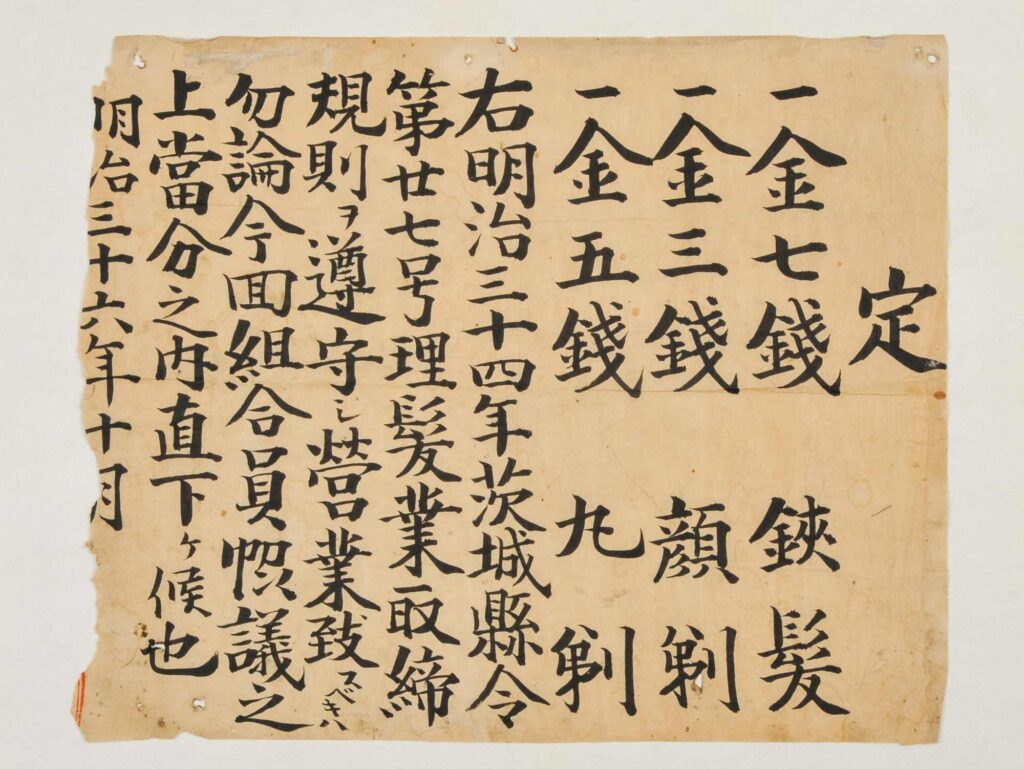 定
一金七錢 鋏髮
一金三錢 顔剃
一金五錢 丸剃
右明治三十四年茨城縣令
第廿七号理髮業取締
規則ヲ遵守シ營業致スベキハ
勿論今回組合員恊議之
上當分之内直下ケ候也
明治三十六年十月